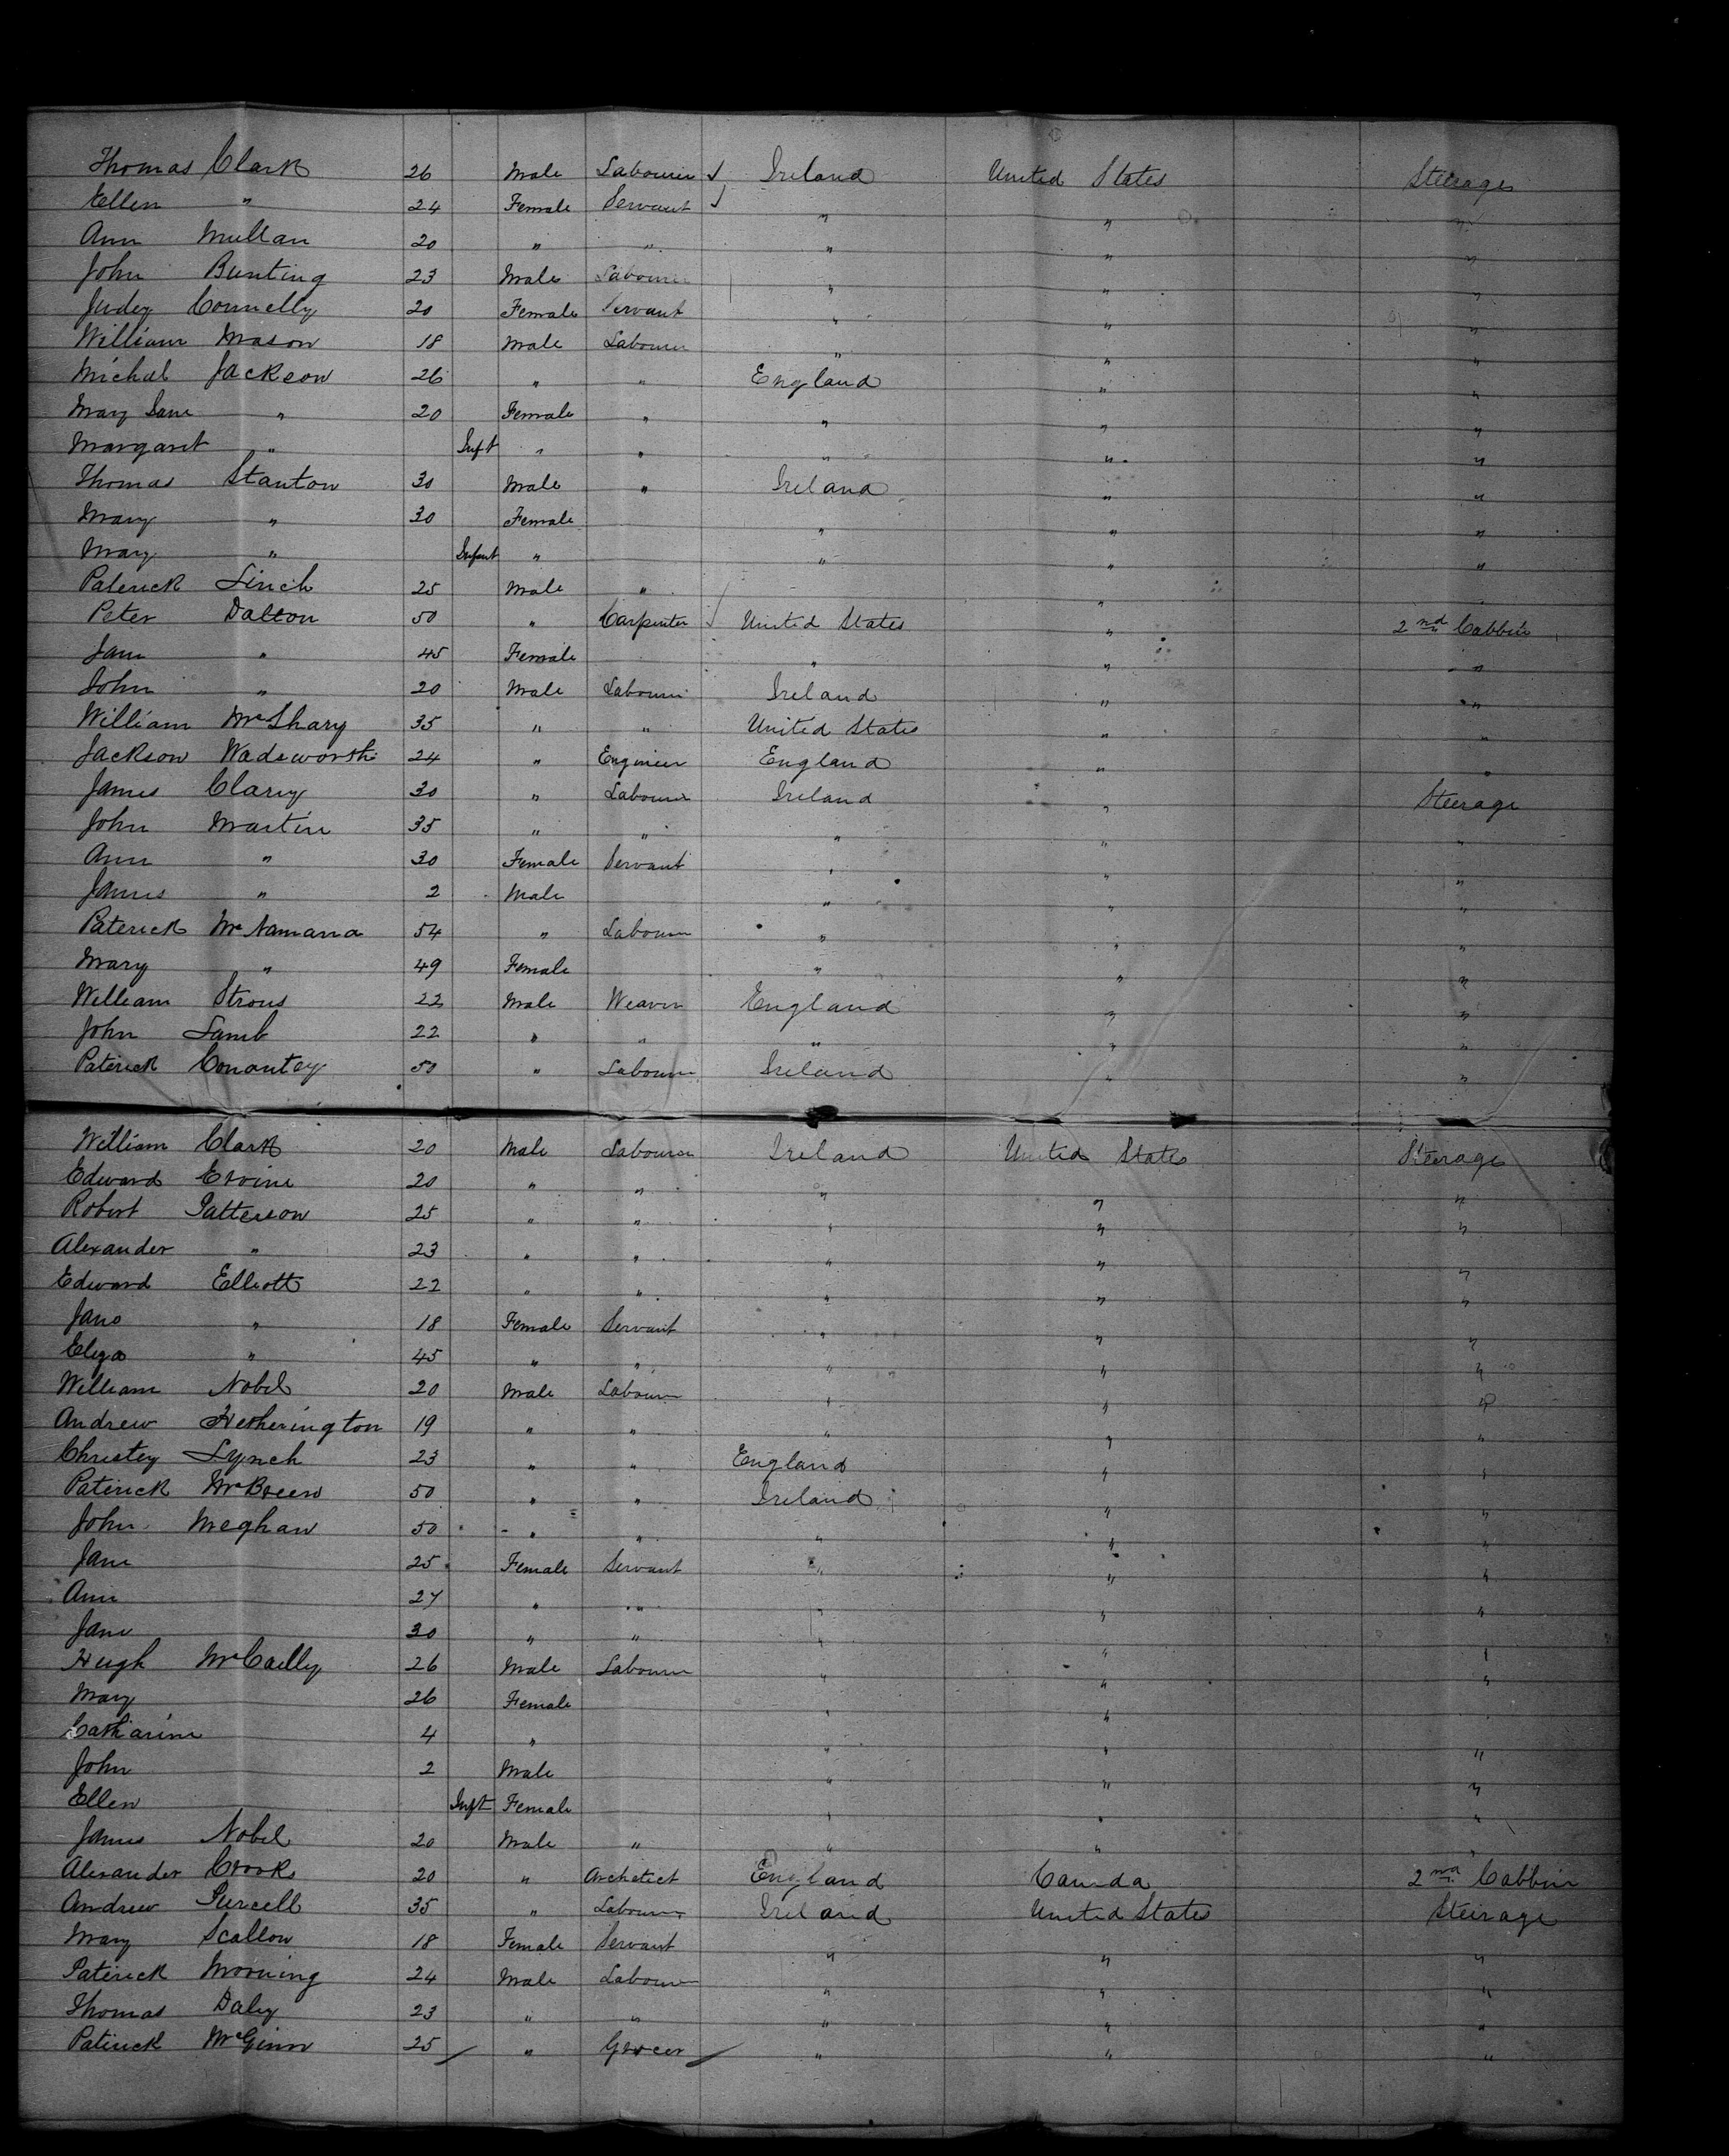 Thomas Clark 26 Male Labourer Ireland United States Steerage
Ellen " 24 Female Servant " " "
Ann Mullan 20 " " " " "
John Bunting 23 Male Labourer " " "
Judey Connelly 20 Female Servant " " "
William Mason 18 Male Labourer " " "
Michal Jackson 26 " " England " "
Mary Jane " 20 Female " " " "
Margaret " Inft " " " " "
Thomas Stanton 30 Male " Ireland " "
Mary " 30 Female " " "
Mary " Infant " " " "
Paterick Linch 25 Male " " "
Peter Dalton 50 " Carpenter United States " 2nd Cabbin
Jane " 45 Female " " "
John " 20 Male Labourer Ireland " "
William McShary 35 " " United States " "
Jackson Wadsworth 24 " Engineer England " "
James Clary 30 " Labourer Ireland " Steerage
John Martin 35 " " " " "
Ann " 30 Female Servant " " "
James " 2 Male " " "
Paterick McNamara 54 " Labourer " " "
Mary " 49 Female " " "
William Strous 22 Male Weaver England " "
John Lamb 22 " " " " "
Paterick Conantey 50 " Labourer Ireland " "
William Clark 20 Male Labourer Ireland United States Steerage
Edward Ervine 20 " " " " "
Robert Patterson 25 " " " " "
Alexander " 23 " " " " "
Edward Elliott 22 " " " " "
Jane " 18 Female Servant " " "
Eliza " 45 " " " " "
William Nobel 20 Male Labourer " " "
Andrew Hetherington 19 " " " " "
Christey Lynch 23 " " England " "
Paterick McBreen 50 " " Ireland " "
John Meghan 50 " " " " "
Jane 25 Female Servant " " "
Ann 27 " " " " "
Jane 30 " " " " "
Hugh McCailly 26 Male Labourer " " "
Mary 26 Female " " "
Catharine 4 " " " "
John 2 Male " " "
Ellen Inft Female " " "
James Nobel 20 Male " " " "
Alexander Crooks 20 " Archetect England Canada 2nd Cabbin
Andrew Purcell 35 " Labourer Ireland United States Steirage
Mary Scallon 18 Female Servant " " "
Paterick Morning 24 Male Labourer " " "
Thomas Daley 23 " " " " "
Paterick McGinn 25 " Grocer " " "